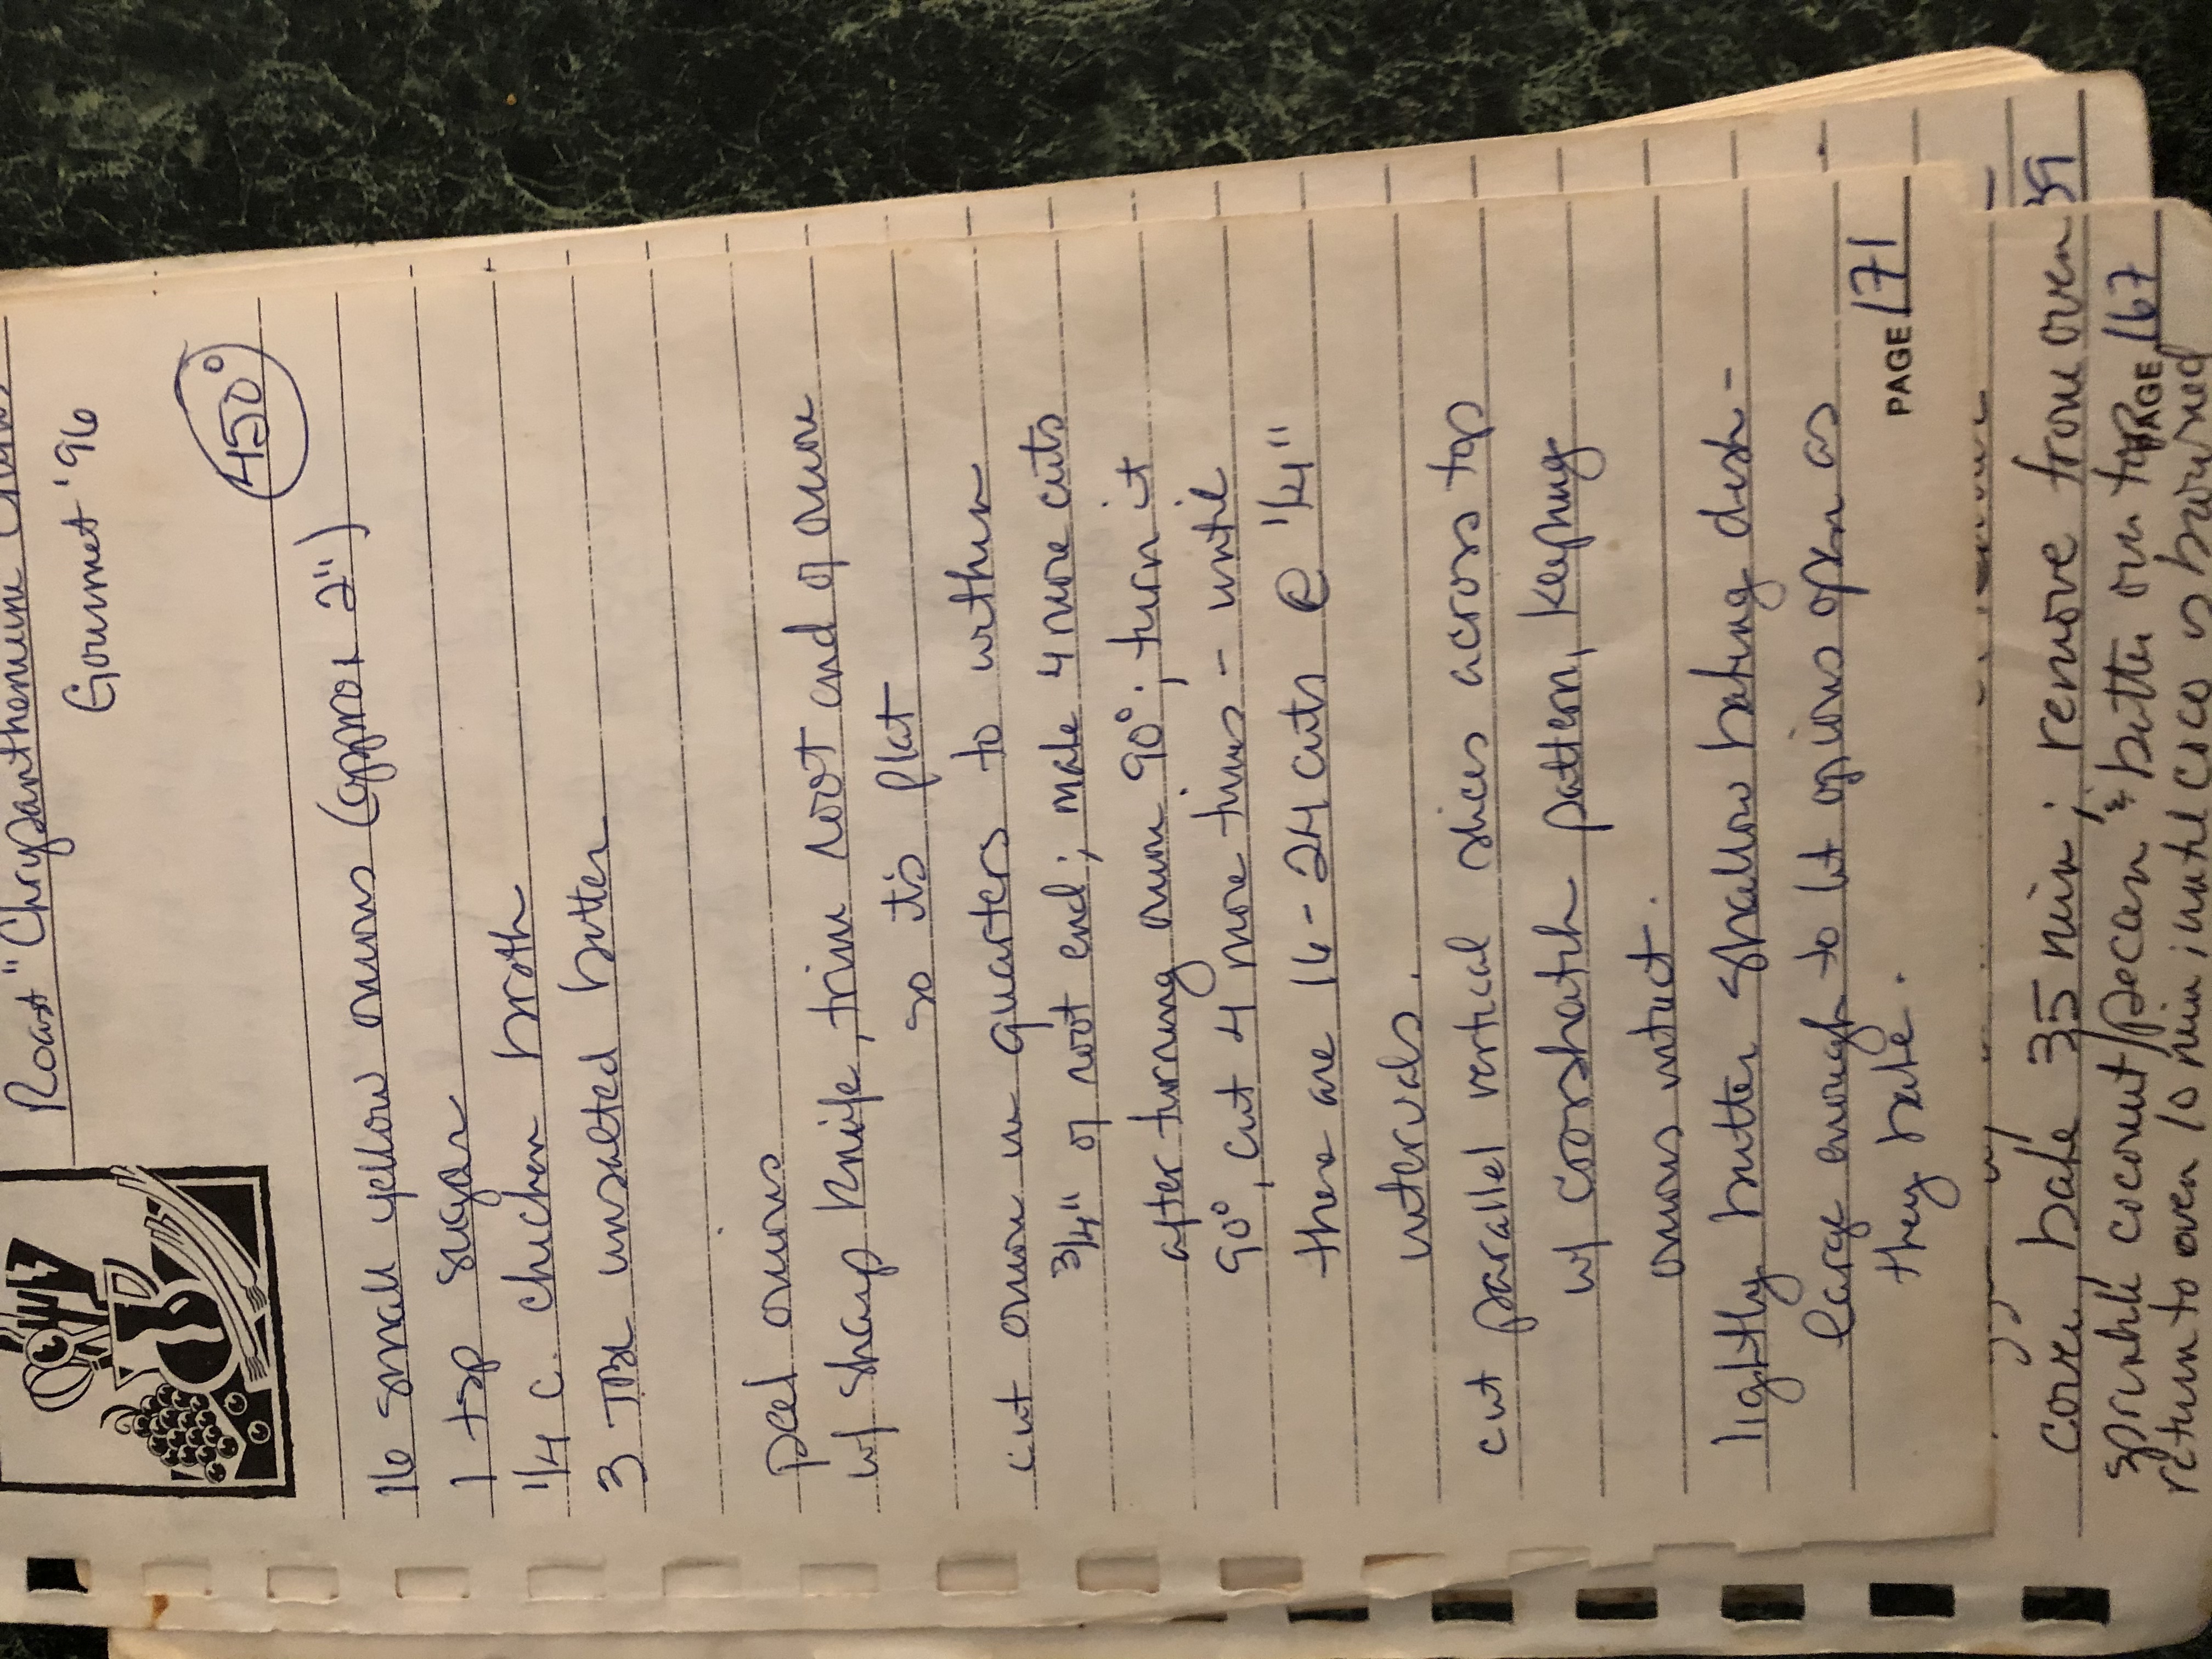 Roast "Chrypanthemum
Gourmet '96
450°
16 small yellow onions (approx 2")
1 tsp sugar
1/4 c. chicken broth
3 TBL unsalted butter
peel onions
w/ sharp knife, trim root end of onion
so it's flat
cut onion in quarters to within
3/4" of root end; make 4 more cuts
after turning onion 90°; turn it
90°, cut 4 more times - until
there are 16-24 cuts @ 1/4"
intervals.
cut parallel vertical slices across top
w/ crosshatch pattern, keeping
onions intact.
lightly butter shallow baking dish -
large enough to let onions open as
they bake.
PAGE 171
39
cover, bake 35 min; remove from oven
sprinkle coconut/pecan & butter on top
PAGE 167
return to oven 10 min until coco is browned